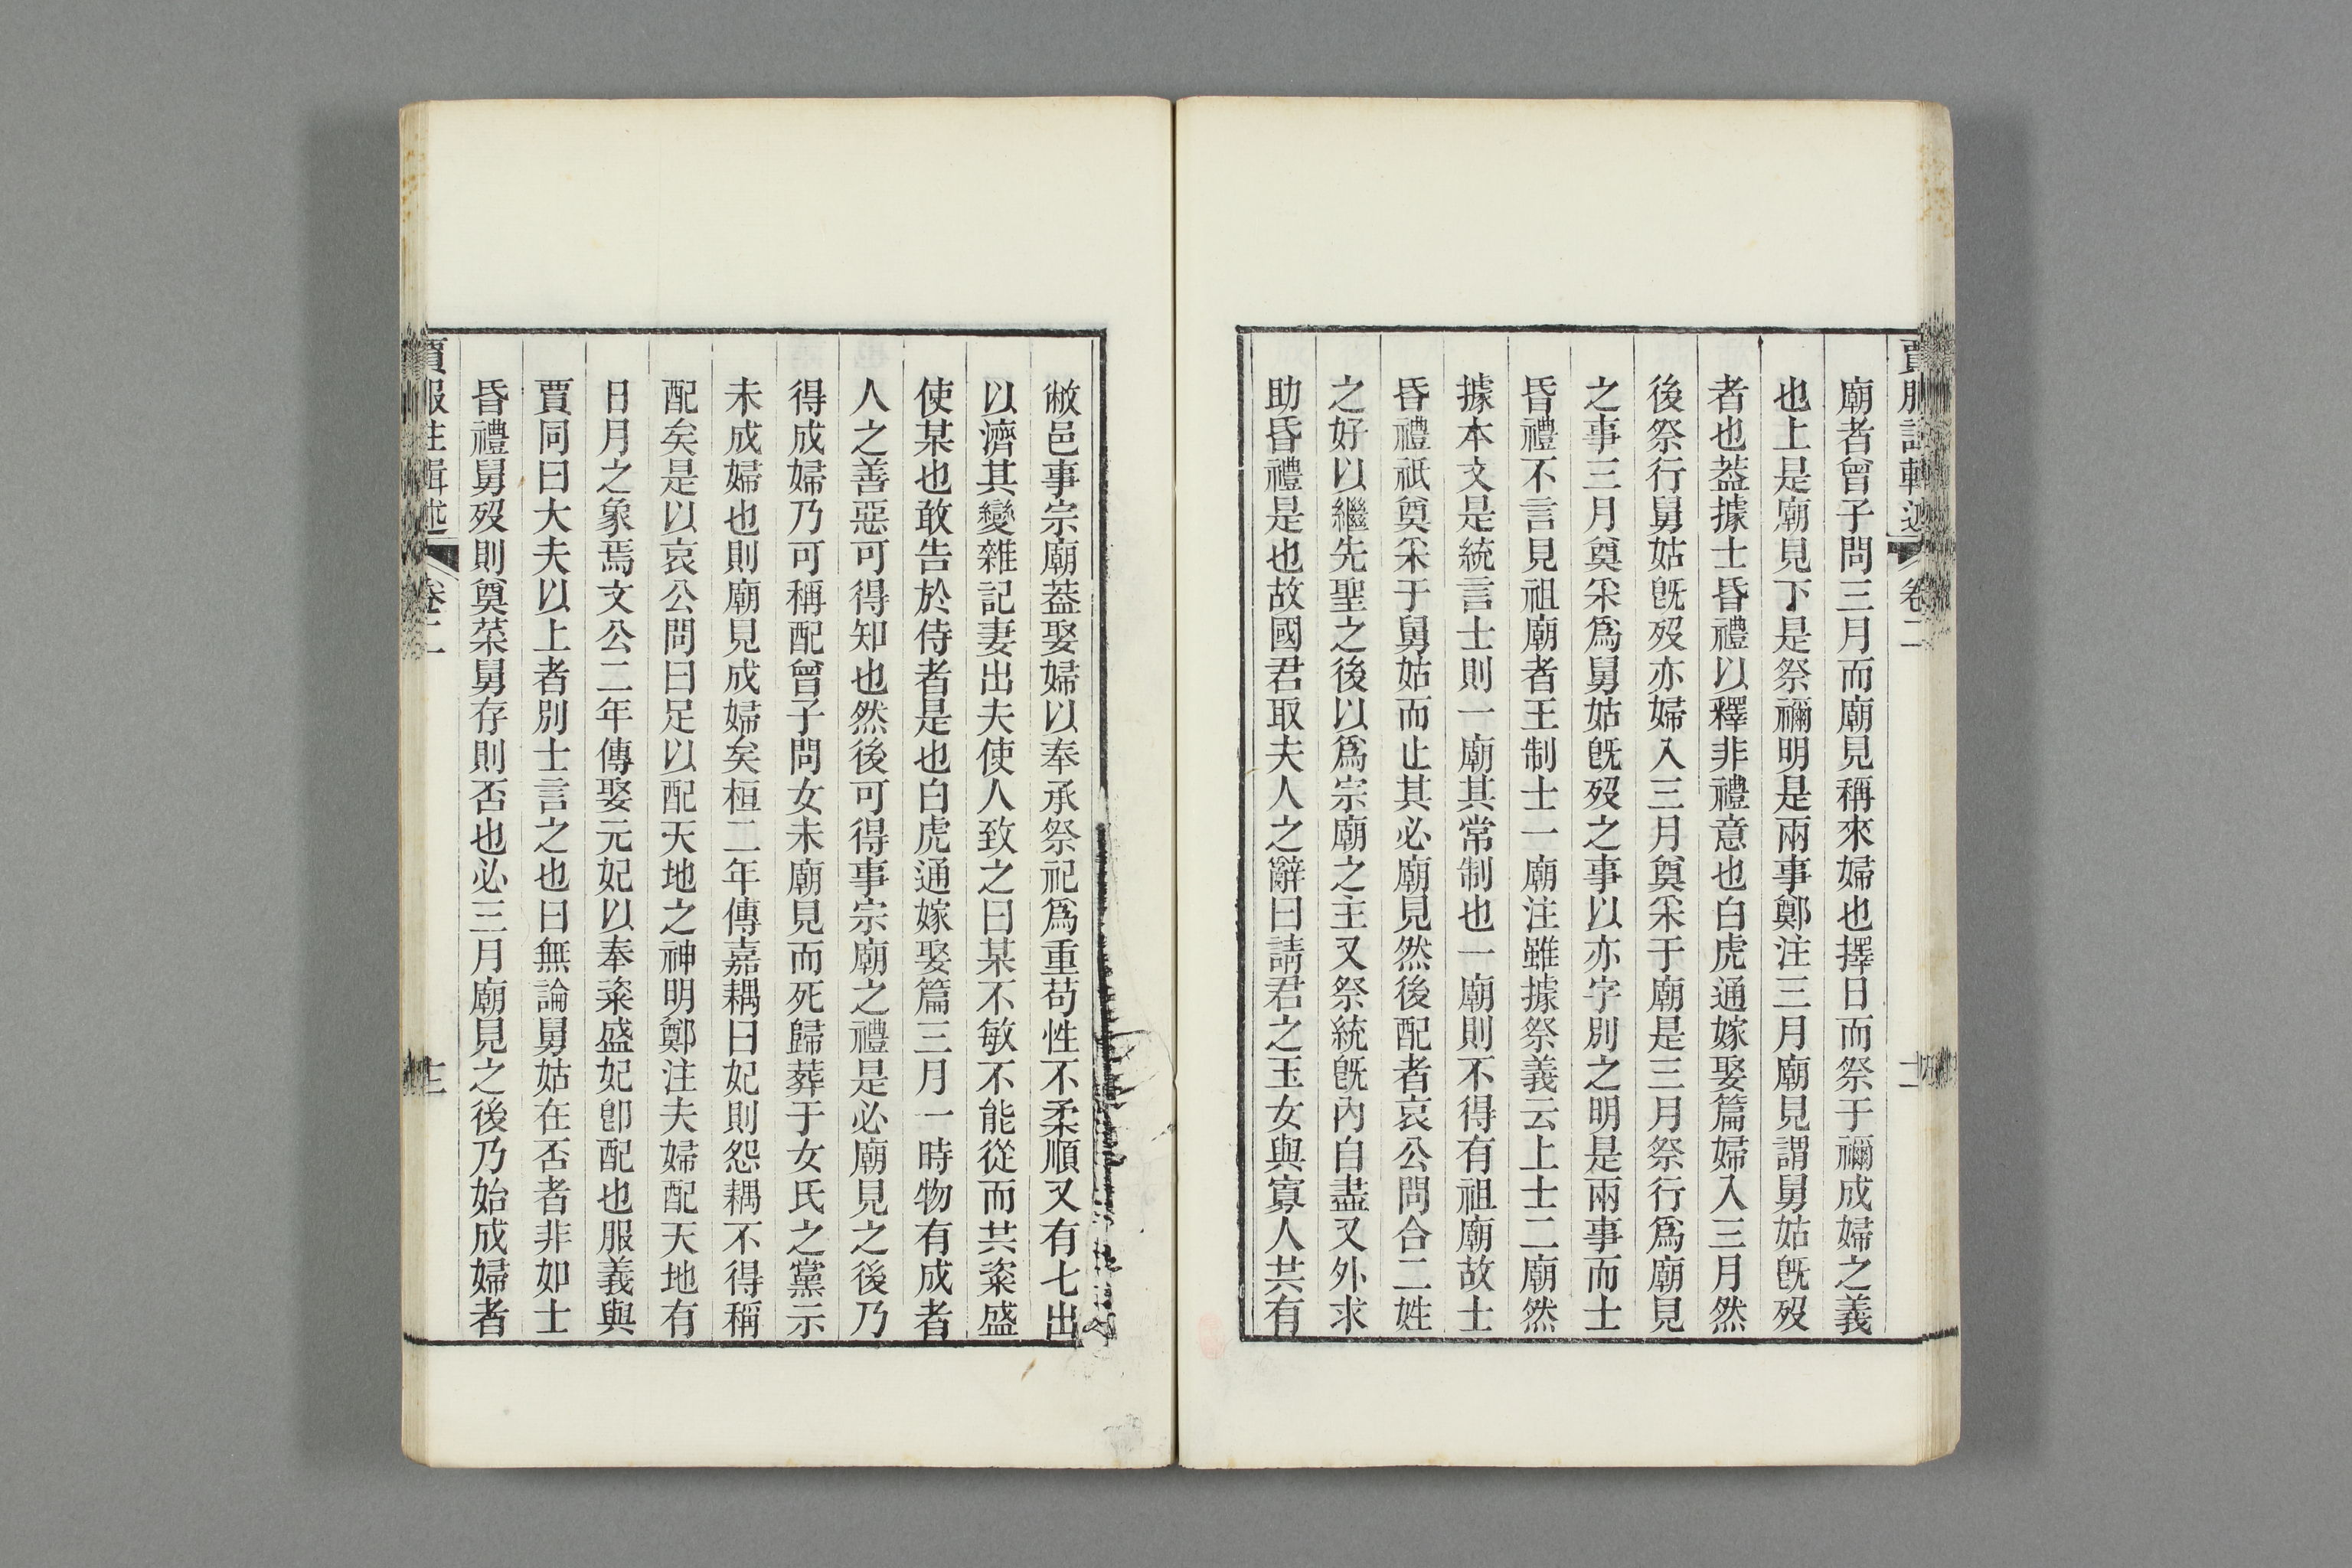 賈服註輯述 卷二 十二
廟者曾子問三月而廟見稱來婦也擇日而祭于禰成婦之義
也上是廟見下是祭禰明是兩事鄭注三月廟見謂舅姑旣歿
者也葢據士昏禮以釋非禮意也白虎通嫁娶篇婦入三月然
後祭行舅姑旣歿亦婦入三月奠采于廟是三月祭行爲廟見
之事三月奠采爲舅姑旣歿之事以亦字別之明是兩事而士
昏禮不言見祖廟者王制士一廟注雖據祭義云上士二廟然
據本文是統言士則一廟其常制也一廟則不得有祖廟故士
昏禮祇奠采于舅姑而止其必廟見然後配者哀公問合二姓
之好以繼先聖之後以爲宗廟之主又祭統旣內自盡又外求
助昏禮是也故國君取夫人之辭曰請君之玉女與寡人共有
敝邑事宗廟葢娶婦以奉承祭祀爲重苟性不柔順又有七出
以濟其變雜記妻出夫使人致之曰某不敏不能從而共粢盛
使某也敢告於侍者是也白虎通嫁娶篇三月一時物有成者
人之善惡可得知也然後可得事宗廟之禮是必廟見之後乃
得成婦乃可稱配曾子問女未廟見而死歸葬于女氏之黨示
未成婦也則廟見成婦矣桓二年傳嘉耦曰妃則怨耦不得稱
配矣是以哀公問曰足以配天地之神明鄭注夫婦配天地有
日月之象焉文公二年傳娶元妃以奉粢盛妃卽配也服義與
賈同曰大夫以上者別士言之也曰無論舅姑在否者非如士
昏禮舅歿則奠菜舅存則否也必三月廟見之後乃始成婦者
賈服註輯述 卷二